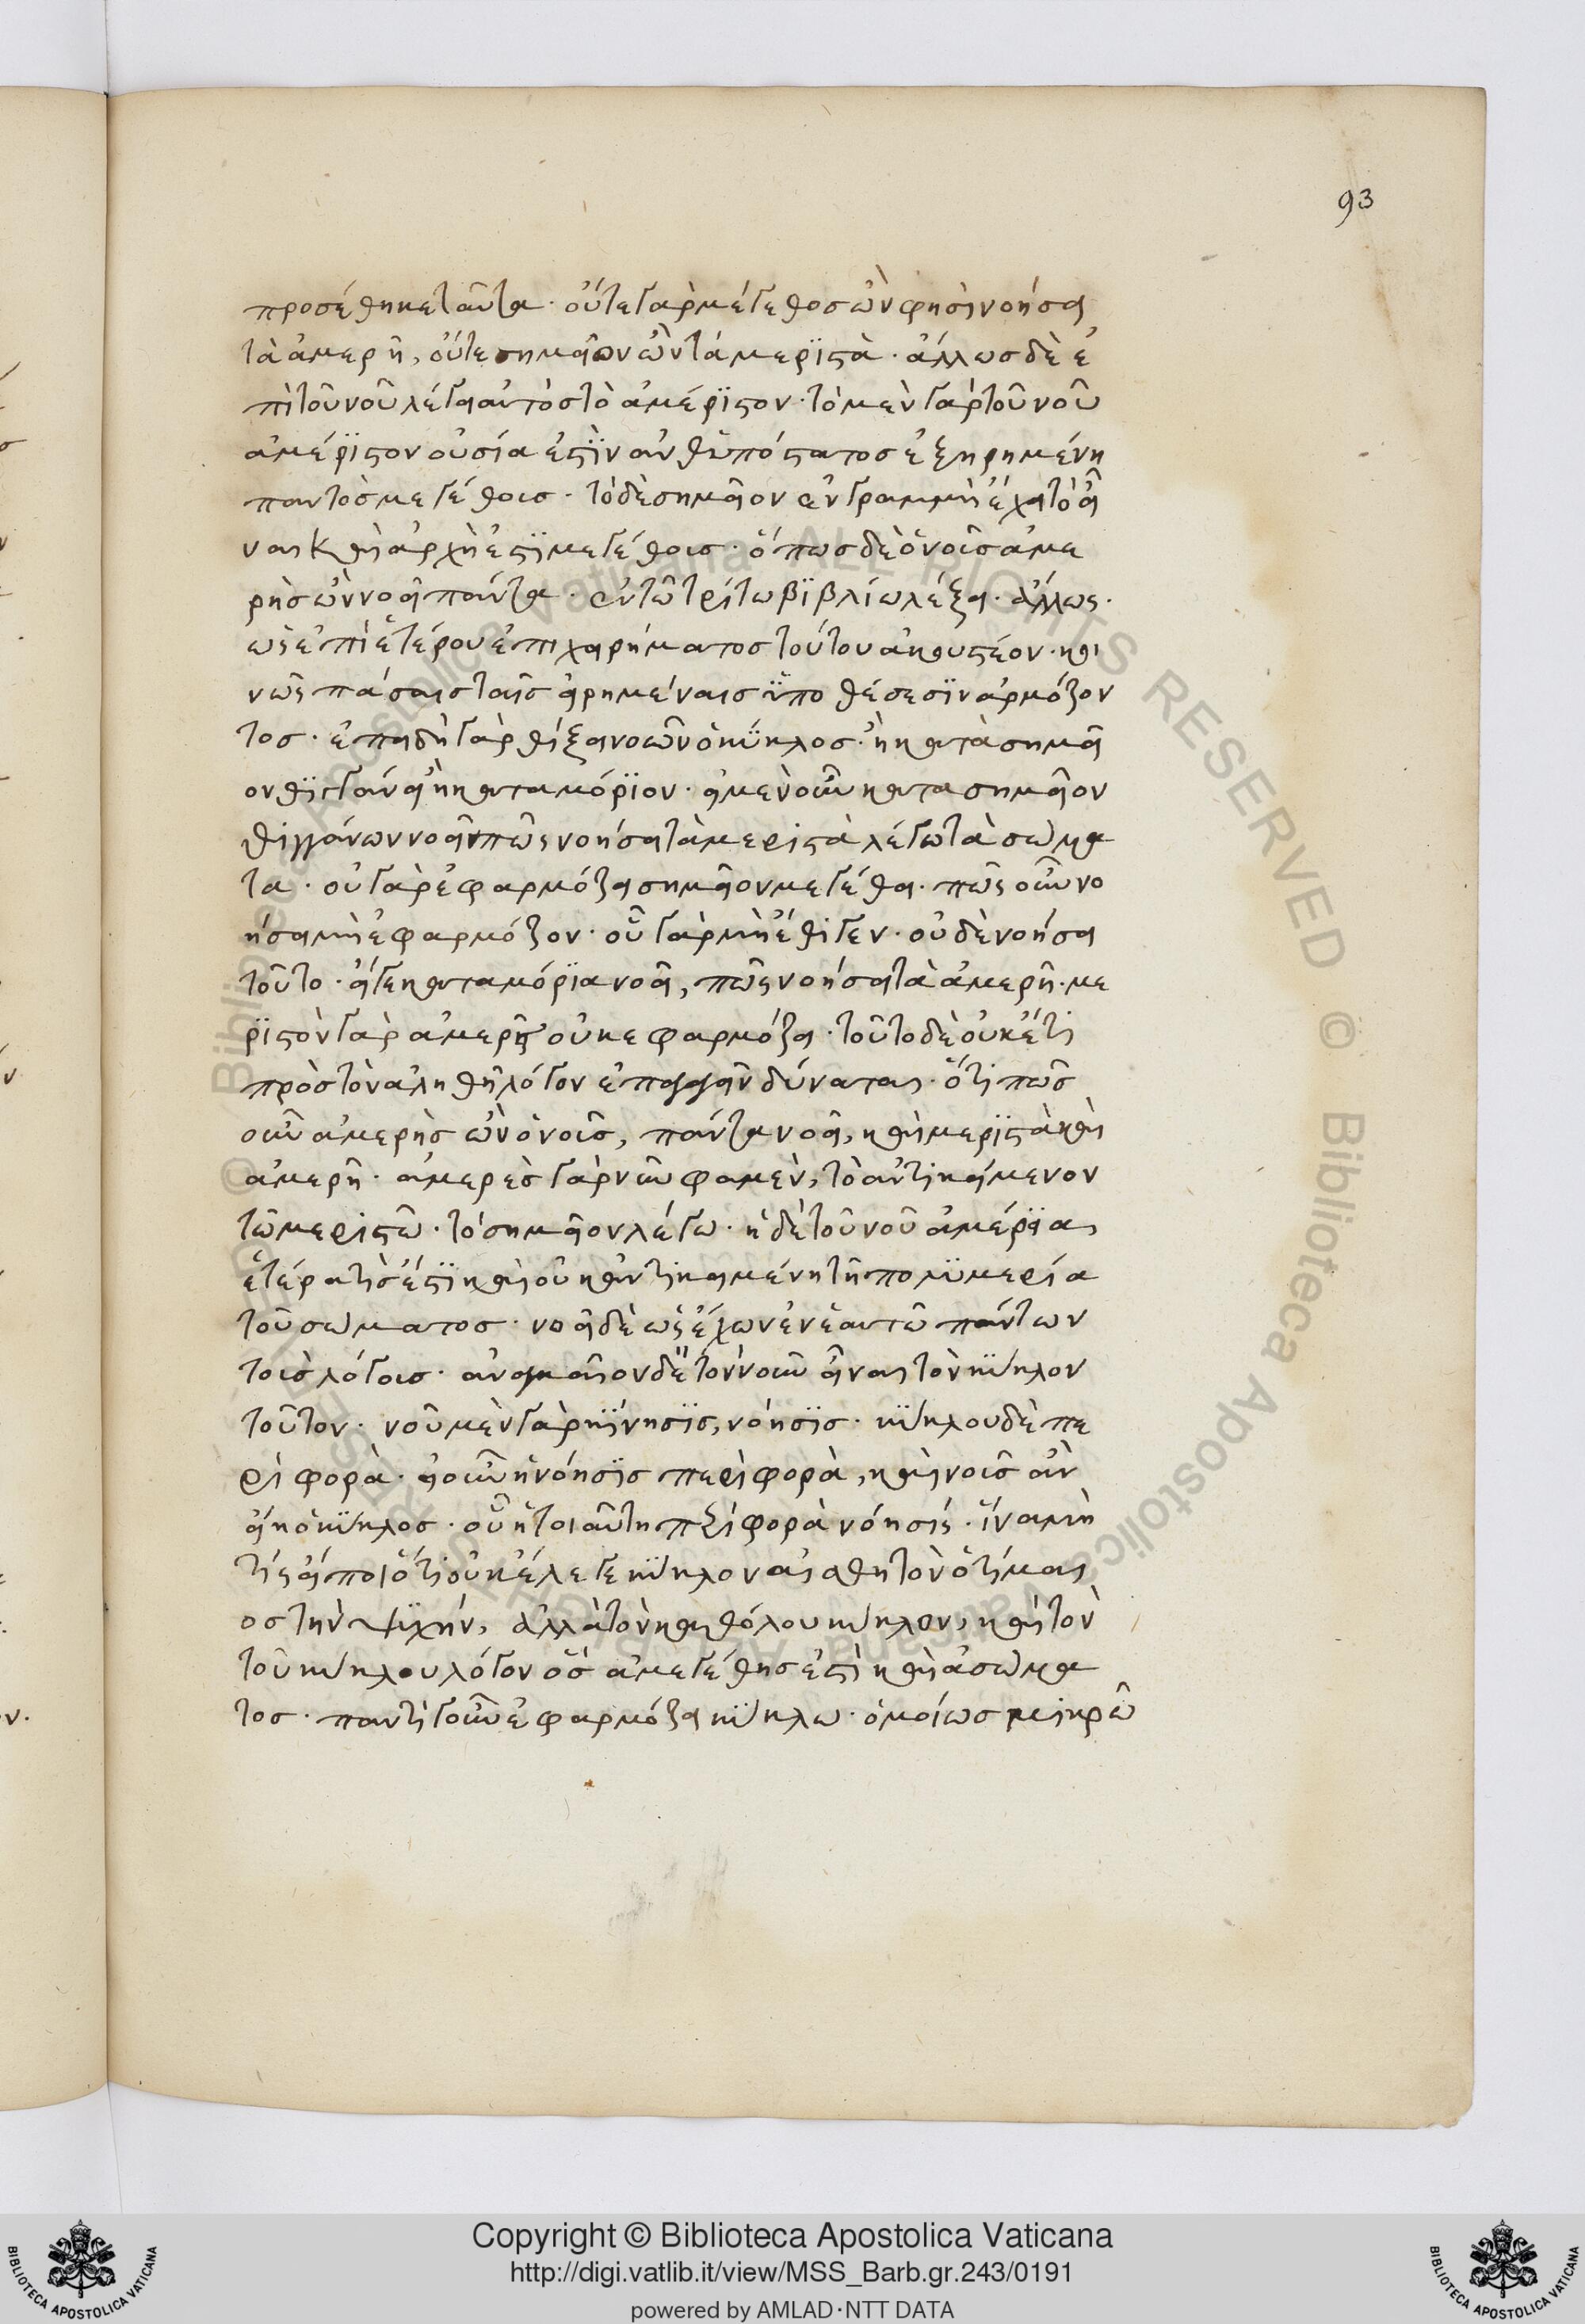 93
προσέθηκε ταῦτα· οὔτε γὰρ μέγεθος ὢν φησὶ νοήσει
τὰ ἀμερῆ, οὔτε σημεῖον ὢν τὰ μεριστὰ· ἄλλως δὲ ἐ
πὶ τοῦ νοῦ λέγει αὐτὸς τὸ ἀμέριστον· τὸ μὲν γὰρ τοῦ νοῦ
ἀμέριστον οὐσία ἐστὶν αὐθϋπόστατος ἐξῃρημένη
παντὸς μεγέθους· τὸ δὲ σημεῖον ἐν γραμμῇ ἔχει τὸ εἶ
ναι καὶ ἀρχὴ ἐστὶ μεγέθους· ὅπως δὲ ὁ νοῦς ἀμε
ρὴς ὢν νοεῖ πάντα· ἐν τῷ τρίτω βιβλίω λέξει· ἄλλως·
ὡς ἐπὶ ἑτέρου ἐπιχειρήματος τούτου ἀκουστέον· κοι
νῶς πάσαις ταῖς εἰρημέναις ὑποθέσεσιν ἁρμόζον
τος· ἐπειδὴ γὰρ θίξει νοῶν ὁ κύκλος· ἢ κατὰ σημεῖ
ον θιγγάνει ἢ κατα μόριον· εἰ μὲν οὖν κατα σημεῖον
θιγγάνων νοεῖ πῶς νοήσει τὰ μεριστὰ λέγω τὰ σώμα
τα· οὐ γὰρ ἐφαρμόζει σημεῖον μεγέθει· πῶς οὖν νο
ήσει μὴ ἐφαρμόζον· οὗ γὰρ μὴ ἔθιγεν· οὐδὲ νοήσει
τοῦτο· εἴγε κατα μόρια νοεῖ, πῶς νοήσει τὰ ἀμερῆ· με
ριστὸν γὰρ ἀμερεῖ οὐκ εφαρμόζει· τοῦτο δὲ οὐκέτι
πρὸς τὸν ἀληθῆ λόγον ἐπαγαγεῖν δύναται· ὅτι πῶς
οὖν ἀμερὴς ὢν ὁ νοῦς, πάντα νοεῖ, καὶ μεριστὰ καὶ
ἀμερῆ· ἀμερὲς γὰρ νῦν φαμὲν, τὸ ἀντικείμενον
τῶ μεριστῶ· τὸ σημεῖον λέγω· ἡ δὲ τοῦ νοῦ ἀμέρεια
ἑτέρα τὶς ἐστὶ καὶ οὐκ ἀντικειμένη τῆ πολυμερεία
τοῦ σώματος· νοεῖ δὲ ὡς ἔχων ἐν ἑαυτῶ πάντων
τοὺς λόγους· ἀναγκαῖον δὲ τὸν νοῦν εἶναι τὸν κύκλον
τοῦτον· νοῦ μὲν γὰρ κίνησις, νόησις· κύκλου δὲ πε
ριφορὰ· εἰ οὖν ἡ νόησις περιφορὰ, καὶ νοῦς ἂν
εἴη ὁ κύκλος· οὗ ἡ τοιαύτη περιφορὰ νόησις· ἵνα μὴ
τίς εἴποι ὅτι οὐκ ἔλεγε κύκλον αἰσθητὸν ὁ τίμαι
ος τὴν ψυχήν, ἀλλὰ τὸν καθόλου κύκλον, καὶ τὸν
τοῦ κύκλου λόγον ὅς ἀμεγέθης ἐστὶ καὶ ἀσώμα
τος· παντὶ γοῦν ἐφαρμόζει κύκλω· ὁμοίως μικρῶ
Copyright © Biblioteca Apostolica Vaticana
http://digi.vatlib.it/view/MSS_Barb.gr.243/0191
powered by AMLAD·NTT DATA